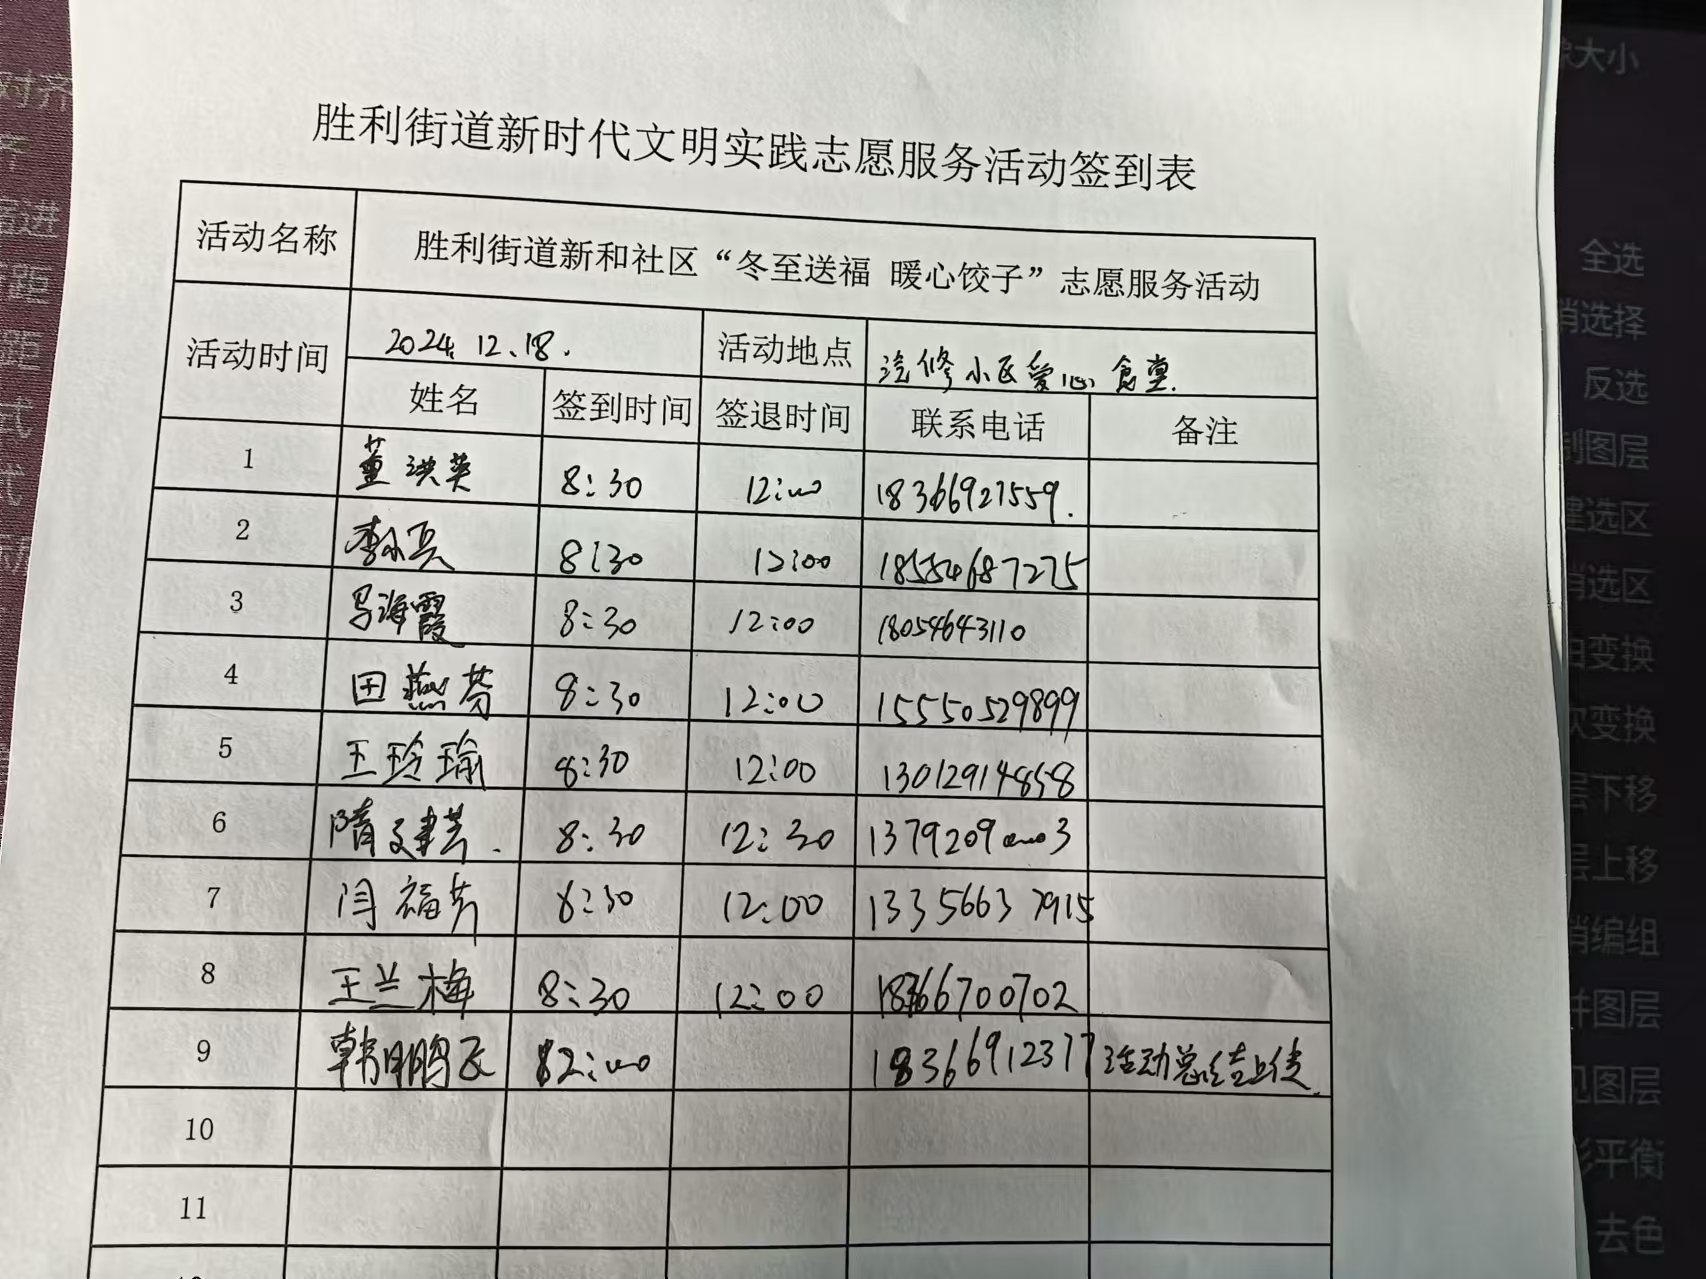 胜利街道新时代文明实践志愿服务活动签到表
活动名称 胜利街道新和社区“冬至送福 暖心饺子”志愿服务活动
活动时间 2024.12.18. 活动地点 汽修小区爱心食堂.
姓名 签到时间 签退时间 联系电话 备注
1 董洪英 8:30 12:00 18366927559.
2 李小兵 8:30 12:00 18554687275
3 马海霞 8:30 12:00 18054643110
4 田燕芬 8:30 12:00 15550529899
5 王玲瑜 8:30 12:00 13012914858
6 隋文建芸. 8:30 12:30 13792090003
7 闫福芳 8:30 12:00 13356637915
8 王兰梅 8:30 12:00 18366700702
9 韩鹏飞 82:00 18366912377 活动总结上传.
10
11
对齐
距
距
式
式
大小
全选
消选择
反选
制图层
建选区
消选区
由变换
次变换
层下移
层上移
消编组
并图层
见图层
彩平衡
去色